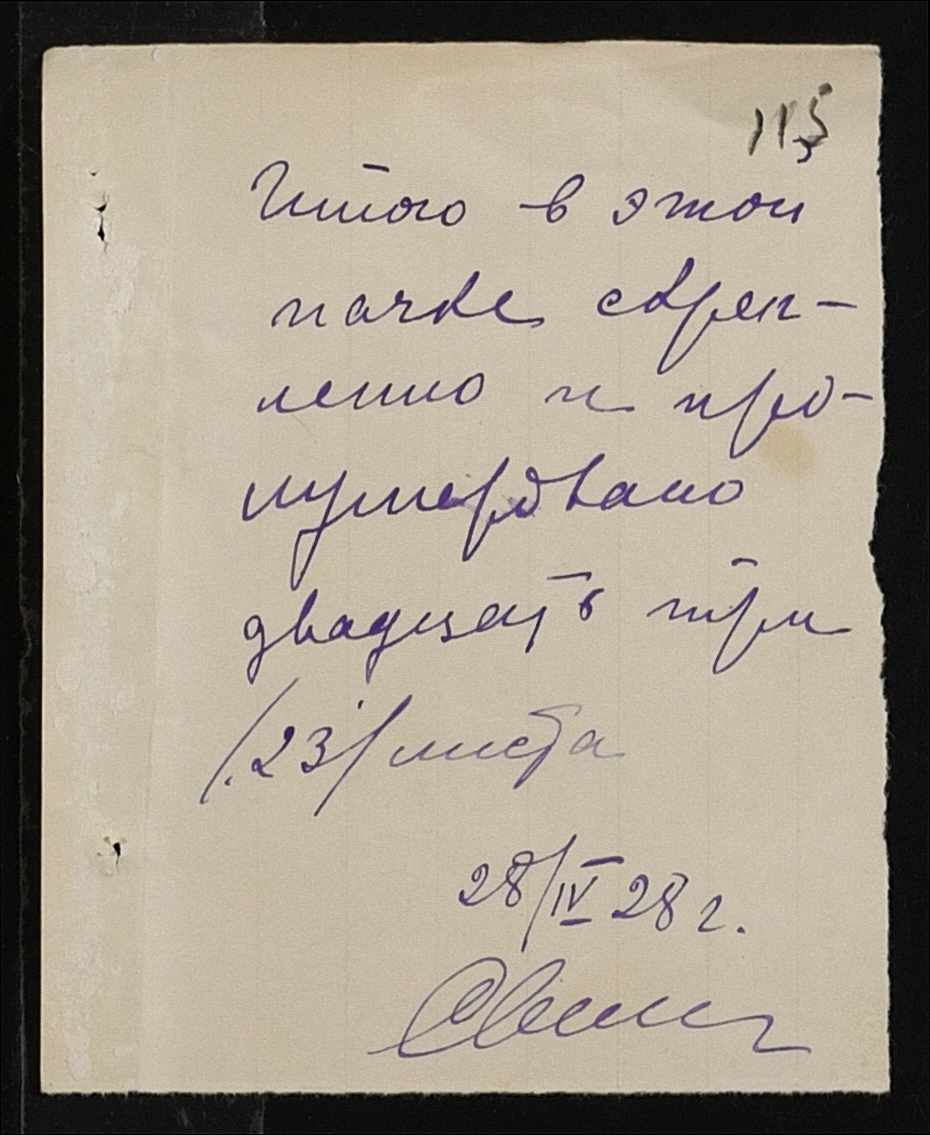 115
Итого в этой
пачке скреп-
ленно и про-
нумеровано
двадцать три
/.23/ листа
28/IV 28 г.